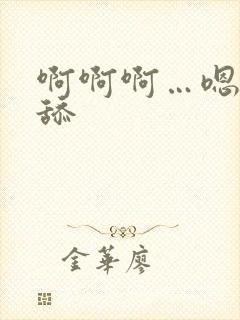 啊啊啊…嗯
舔
金華廖